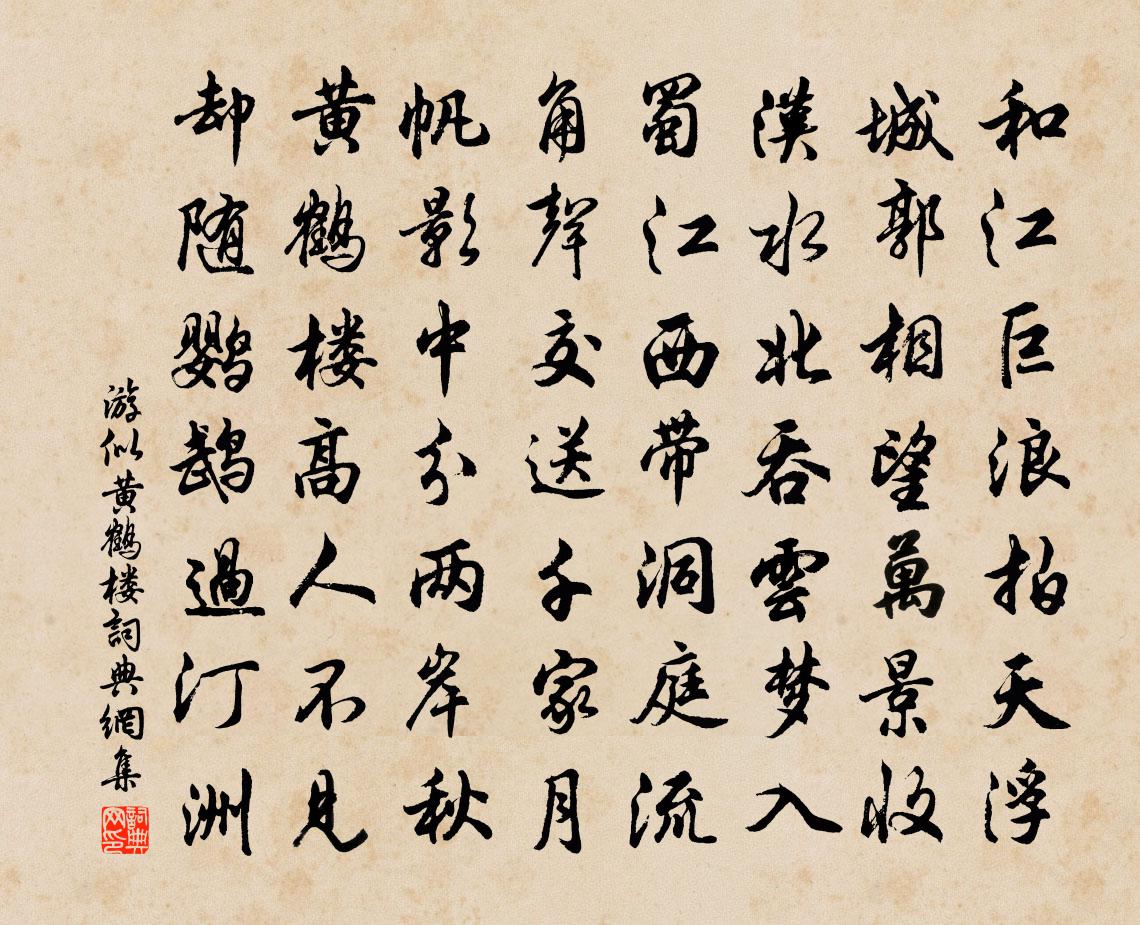 和江巨浪拍天浮
城郭相望萬景收
漢水北吞雲梦入
蜀江西带洞庭流
角聲交送千家月
帆影中分两岸秋
黄鶴楼高人不見
却随鹦鹉過汀洲
游似黄鶴楼詞典網集
詞典
网印